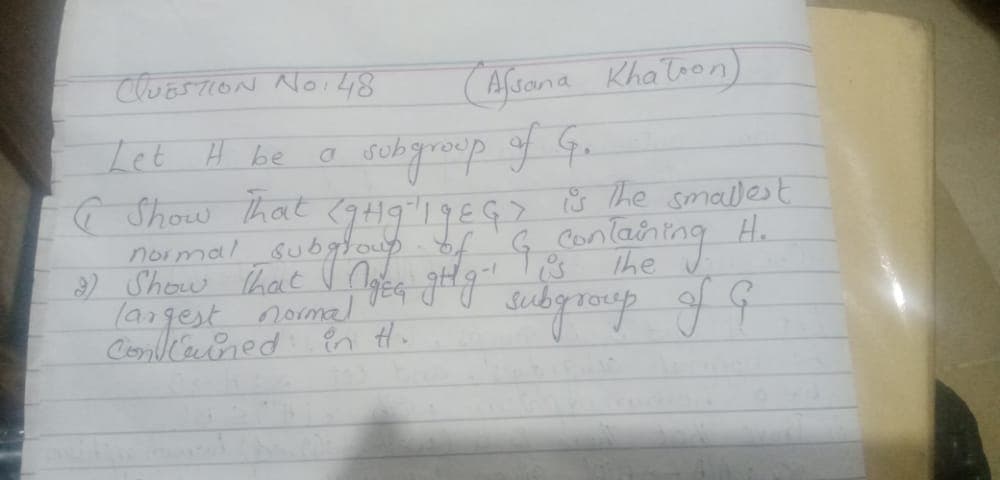 QUESTION No: 48 (Afsana Khatoon)
Let H be a subgroup of G.
(1 Show that <gHg⁻¹| g ∈ G> is the smallest
normal subgroup of G containing H.
2) Show that ∩g∈G gHg⁻¹ is the
largest normal subgroup of G
contained in H.